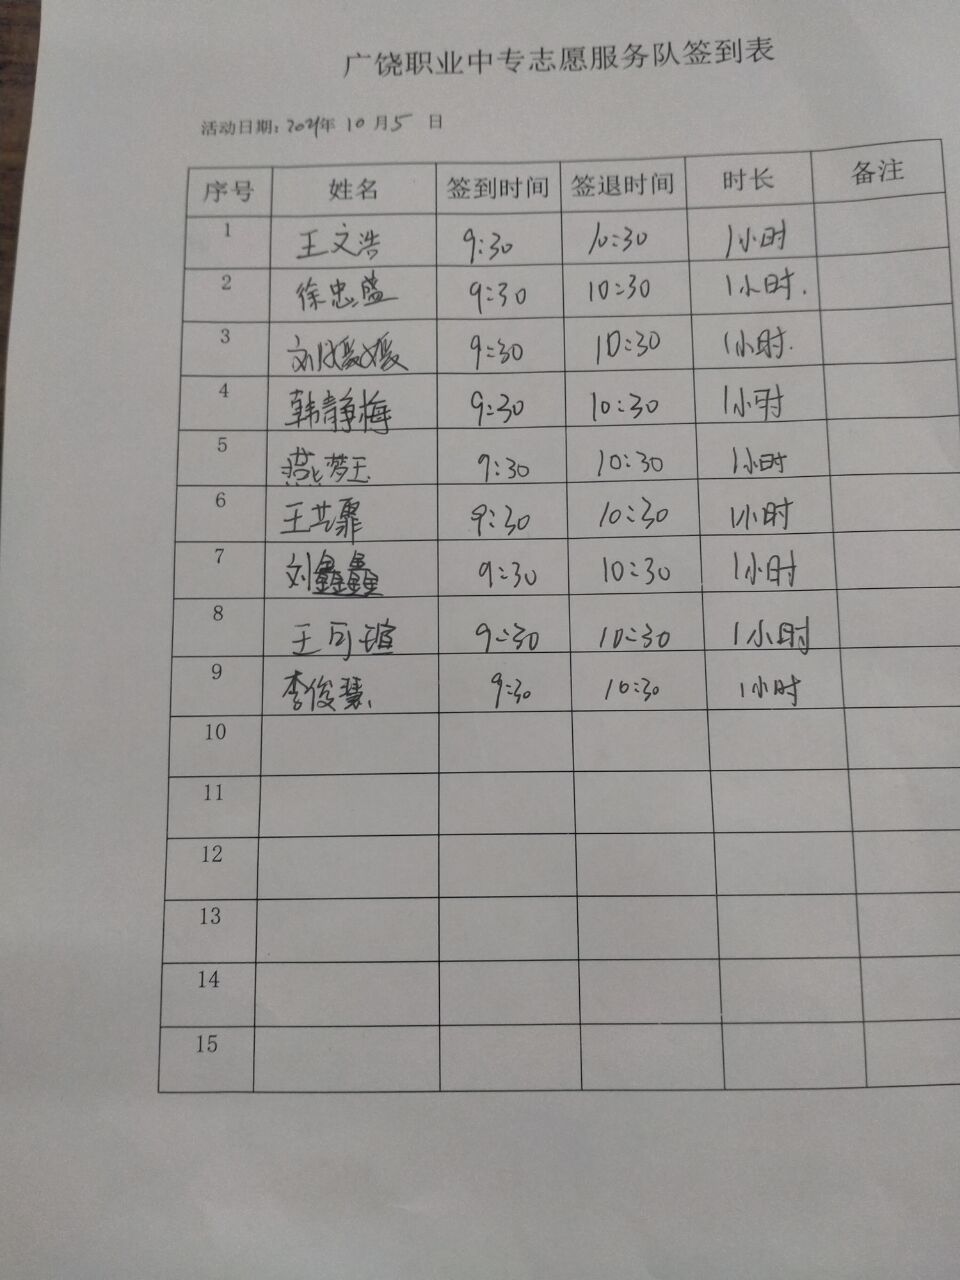 广饶职业中专志愿服务队签到表
活动日期: 年 10 月 5 日
序号 姓名 签到时间 签退时间 时长 备注
1 王文浩 9:30 10:30 1小时
2 徐忠盛 9:30 10:30 1小时.
3 刘媛媛 9:30 10:30 1小时.
4 韩静梅 9:30 10:30 1小时
5 燕梦玉 9:30 10:30 1小时
6 王艺霏 9:30 10:30 1小时
7 刘鑫鑫 9:30 10:30 1小时
8 王可瑄 9:30 10:30 1小时
9 李俊慧 9:30 10:30 1小时
10
11
12
13
14
15